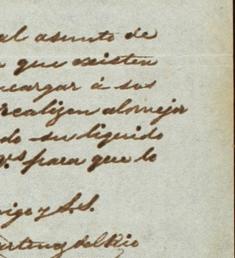 al asunto de
que existen
ncargar á sus
realizen al mejor
do su liquido
V.s para que lo
migo y S.S.
artinez del Rio